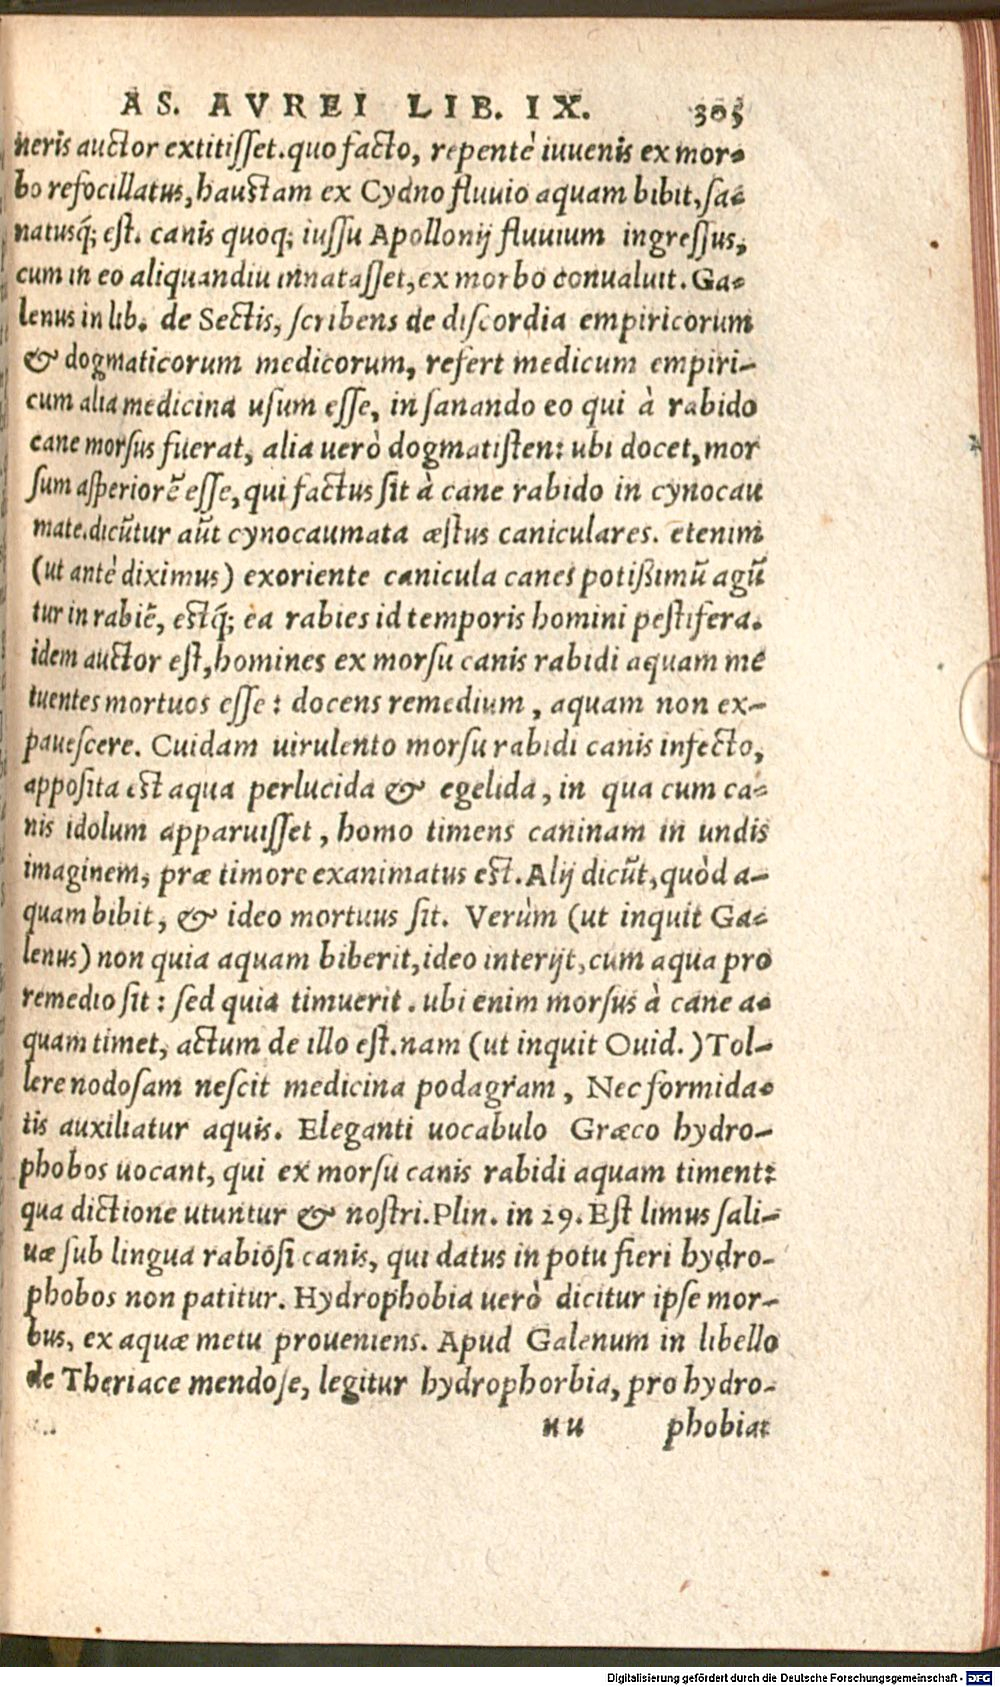 AS. AVREI LIB. IX. 305
neris auctor extitisset. quo facto, repentè iuuenis ex mor-
bo refocillatus, haustam ex Cydno fluuio aquam bibit, sa-
natusq́; est. canis quoq; iussu Apollonij fluuium ingressus,
cum in eo aliquandiu innatasset, ex morbo conualuit. Ga-
lenus in lib. de Sectis, scribens de discordia empiricorum
& dogmaticorum medicorum, refert medicum empiri-
cum alia medicina usum esse, in sanando eo qui à rabido
cane morsus fuerat, alia uerò dogmatisten: ubi docet, mor
sum asperiorẽ esse, qui factus sit à cane rabido in cynocau
mate. dicũtur aũt cynocaumata æstus caniculares. etenim
(ut antè diximus) exoriente canicula canes potißimũ agũ
tur in rabiẽ, estq́; ea rabies id temporis homini pestifera.
idem auctor est, homines ex morsu canis rabidi aquam me
tuentes mortuos esse: docens remedium, aquam non ex-
pauescere. Cuidam uirulento morsu rabidi canis infecto,
apposita est aqua perlucida & egelida, in qua cum ca-
nis idolum apparuisset, homo timens caninam in undis
imaginem, præ timore exanimatus est. Alij dicũt, quòd a-
quam bibit, & ideo mortuus sit. Verùm (ut inquit Ga-
lenus) non quia aquam biberit, ideo interijt, cum aqua pro
remedio sit: sed quia timuerit. ubi enim morsus à cane a-
quam timet, actum de illo est. nam (ut inquit Ouid.) Tol-
lere nodosam nescit medicina podagram, Nec formida-
tis auxiliatur aquis. Eleganti uocabulo Græco hydro-
phobos uocant, qui ex morsu canis rabidi aquam timent:
qua dictione utuntur & nostri. Plin. in 29. Est limus sali-
uæ sub lingua rabiosi canis, qui datus in potu fieri hydro-
phobos non patitur. Hydrophobia uerò dicitur ipse mor-
bus, ex aquæ metu proueniens. Apud Galenum in libello
de Theriace mendose, legitur hydrophorbia, pro hydro-
nu phobia:
Digitalisierung gefördert durch die Deutsche Forschungsgemeinschaft - DFG